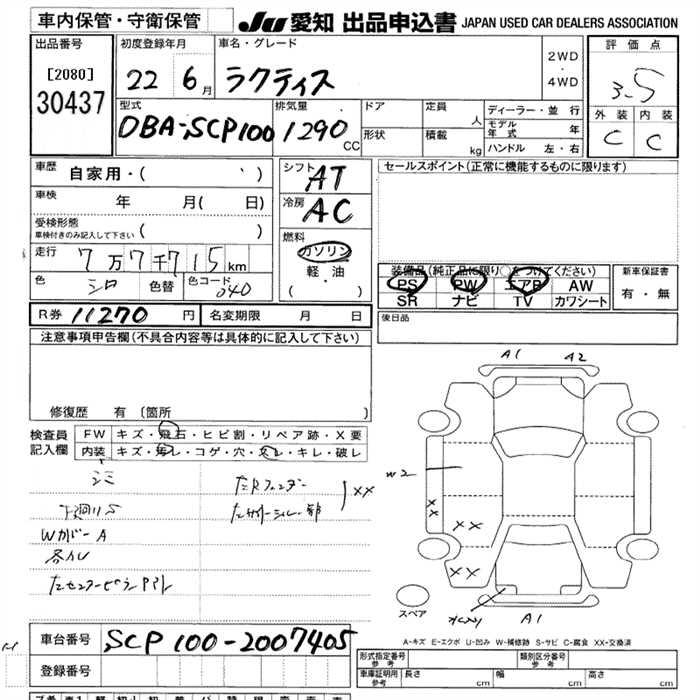 車内保管・守衛保管
JU 愛知 出品申込書 JAPAN USED CAR DEALERS ASSOCIATION
出品番号
[2080]
30437
初度登録年月
22 6月
車名・グレード
ラクティス
2WD
・
4WD
評価点
3.5
外装 内装
C C
型式
DBA-SCP100
排気量
1290 CC
ドア
形状
定員 人
積載 kg
ディーラー・並行
モデル年式 年
ハンドル 左・右
車歴
自家用・( )
車検 年 月( 日)
受検形態
車検付きのみ記入して下さい ( )
走行 7万7千715km
色 シロ 色替 色コード 040
シフト AT
冷房 AC
燃料
ガソリン
軽・油
( ・ )
セールスポイント(正常に機能するものに限ります)
装備品(純正品に限り○をつけてください)
PS PW エアB AW
SR ナビ TV カワシート
新車保証書
有・無
R券 11270 円 名変期限 月 日
後日品
注意事項申告欄(不具合内容等は具体的に記入して下さい)
修復歴 有 〔箇所 〕
検査員記入欄
FW キズ・飛石・ヒビ割・リペア跡・X要
内装 キズ・汚レ・コゲ・穴・スレ・キレ・破レ
シミ
下廻りS
Wカバー A
XX
A1 A2
W2
XX
XX
XX
A1
スペア
A-キズ E-エクボ U-凹み W-補修跡 S-サビ C-腐食 XX-交換済
車台番号 SCP100-2007405
登録番号
形式指定番号 参考
類別区分番号 参考
車庫証明用 参考 長さ cm 幅 cm 高さ cm